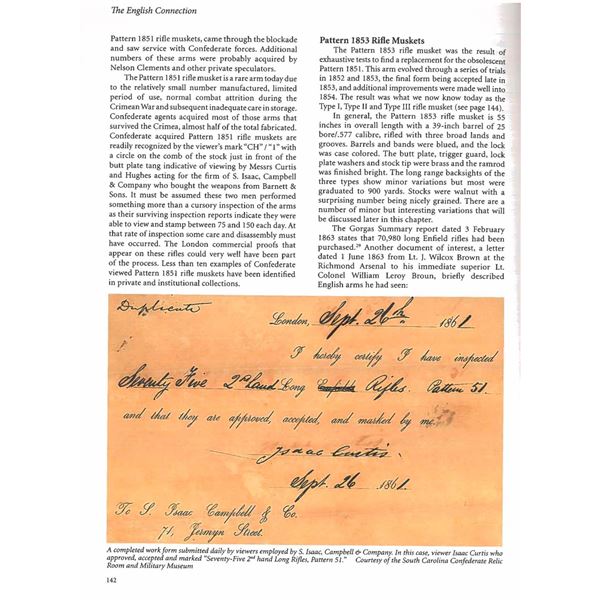 The English Connection
Pattern 1851 rifle muskets, came through the blockade
and saw service with Confederate forces. Additional
numbers of these arms were probably acquired by
Nelson Clements and other private speculators.
The Pattern 1851 rifle musket is a rare arm today due
to the relatively small number manufactured, limited
period of use, normal combat attrition during the
Crimean War and subsequent inadequate care in storage.
Confederate agents acquired most of those arms that
survived the Crimea, almost half of the total fabricated.
Confederate acquired Pattern 1851 rifle muskets are
readily recognized by the viewer's mark "CH" / "1" with
a circle on the comb of the stock just in front of the
butt plate tang indicative of viewing by Messrs Curtis
and Hughes acting for the firm of S. Isaac, Campbell
& Company who bought the weapons from Barnett &
Sons. It must be assumed these two men performed
something more than a cursory inspection of the arms
as their surviving inspection reports indicate they were
able to view and stamp between 75 and 150 each day. At
that rate of inspection some care and disassembly must
have occurred. The London commercial proofs that
appear on these rifles could very well have been part of
the process. Less than ten examples of Confederate
viewed Pattern 1851 rifle muskets have been identified
in private and institutional collections.
Pattern 1853 Rifle Muskets
The Pattern 1853 rifle musket was the result of
exhaustive tests to find a replacement for the obsolescent
Pattern 1851. This arm evolved through a series of trials
in 1852 and 1853, the final form being accepted late in
1853, and additional improvements were made well into
1854. The result was what we now know today as the
Type I, Type II and Type III rifle musket (see page 144).
In general, the Pattern 1853 rifle musket is 55
inches in overall length with a 39-inch barrel of 25
bore/.577 calibre, rifled with three broad lands and
grooves. Barrels and bands were blued, and the lock
was case colored. The butt plate, trigger guard, lock
plate washers and stock tip were brass and the ramrod
was finished bright. The long range backsights of the
three types show minor variations but most were
graduated to 900 yards. Stocks were walnut with a
surprising number being nicely grained. There are a
number of minor but interesting variations that will
be discussed later in this chapter.
The Gorgas Summary report dated 3 February
1863 states that 70,980 long Enfield rifles had been
purchased.²⁹ Another document of interest, a letter
dated 1 June 1863 from Lt. J. Wilcox Brown at the
Richmond Arsenal to his immediate superior Lt.
Colonel William Leroy Broun, briefly described
English arms he had seen:
Duplicate
London, Sept. 26th 1861
I hereby certify I have inspected
Seventy Five 2nd hand Long Enfield Rifles. Pattern 51.
and that they are approved, accepted, and marked by me.
Isaac Curtis.
Sept. 26 1861.
To S. Isaac Campbell & Co.
71, Jermyn Street.
A completed work form submitted daily by viewers employed by S. Isaac, Campbell & Company. In this case, viewer Isaac Curtis who
approved, accepted and marked "Seventy-Five 2nd hand Long Rifles, Pattern 51." Courtesy of the South Carolina Confederate Relic
Room and Military Museum
142